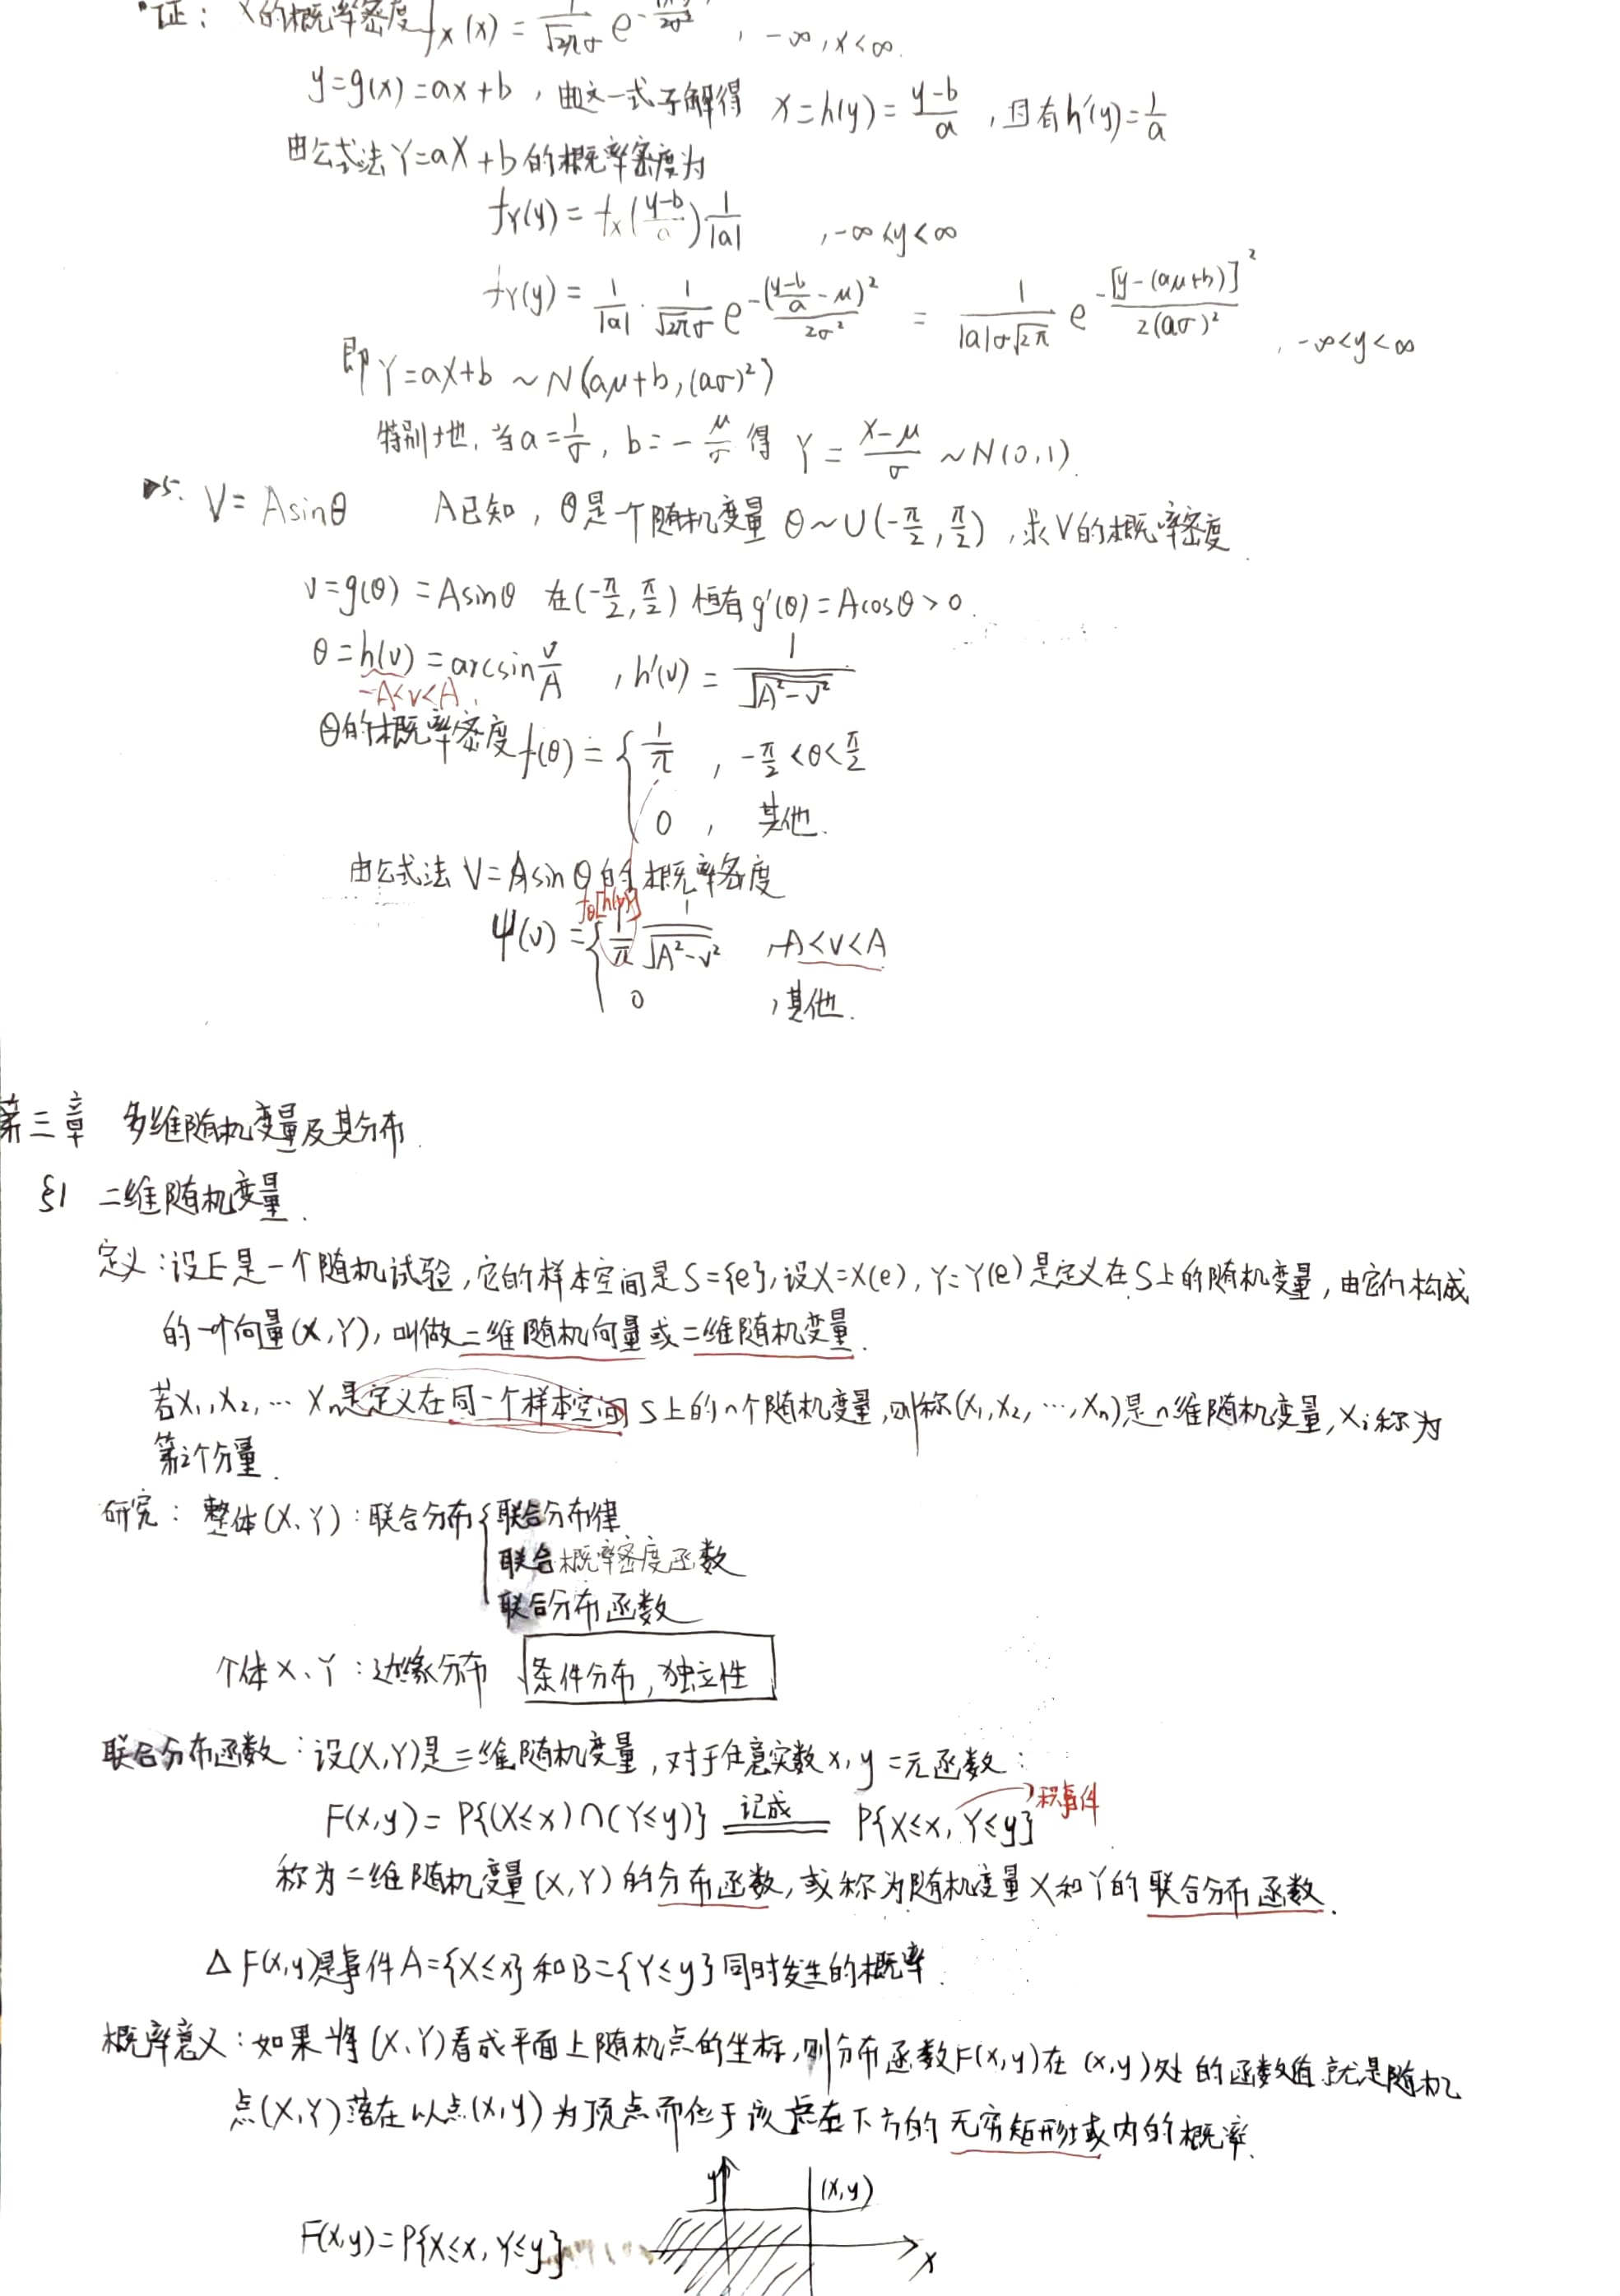 证: X的概率密度 f_X(x) = 1/(√2π σ) e^{-(x-μ)²/2σ²}, -∞<x<∞.
y=g(x)=ax+b, 由这一式子解得 x=h(y)=(y-b)/a, 且有h'(y)=1/a
由公式法Y=aX+b的概率密度为
f_Y(y) = f_X((y-b)/a) 1/|a| , -∞<y<∞
f_Y(y) = 1/|a| · 1/(√2π σ) e^{-((y-b)/a - μ)²/2σ²} = 1/(|a|σ√2π) e^{-[y-(aμ+b)]²/2(aσ)²} , -∞<y<∞
即 Y=aX+b ~ N(aμ+b, (aσ)²)
特别地, 当a=1/σ, b=-μ/σ 得 Y = (X-μ)/σ ~ N(0,1).
5. V=Asinθ A已知, θ是一个随机变量 θ~U(-π/2, π/2), 求V的概率密度.
v=g(θ)=Asinθ 在(-π/2, π/2) 恒有g'(θ)=Acosθ>0.
θ=h(v)=arcsin v/A , h'(v) = 1/√(A²-v²)
-A<v<A
θ的概率密度f(θ) = { 1/π , -π/2<θ<π/2
0 , 其他.
由公式法 V=Asinθ的概率密度
f_θ[h(v)]
ψ(v) = { 1/π 1/√(A²-v²) , -A<v<A
0 , 其他.
第三章 多维随机变量及其分布.
§1 二维随机变量.
定义:设E是一个随机试验,它的样本空间是S={e},设X=X(e),Y=Y(e)是定义在S上的随机变量,由它们构成
的一个向量(X,Y),叫做二维随机向量或二维随机变量.
若X₁,X₂,… Xₙ是定义在同一个样本空间S上的n个随机变量,则称(X₁,X₂,…,Xₙ)是n维随机变量,Xᵢ称为
第i个分量.
研究: 整体(X、Y):联合分布{联合分布律
联合概率密度函数
联合分布函数
个体X、Y:边缘分布 条件分布,独立性
联合分布函数:设(X,Y)是二维随机变量,对于任意实数x,y 二元函数:
F(x,y)=P{(X≤x)∩(Y≤y)} 记成 P{X≤x, Y≤y} 积事件
称为二维随机变量(X,Y)的分布函数,或称为随机变量X和Y的联合分布函数.
△ F(x,y)是事件A={X≤x}和B={Y≤y}同时发生的概率.
概率意义:如果将(X,Y)看成平面上随机点的坐标,则分布函数F(x,y)在(x,y)处的函数值就是随机
点(X,Y)落在以点(x,y)为顶点而位于该点左下方的无穷矩形域内的概率.
y (x,y)
F(x,y)=P{X≤x, Y≤y}
x